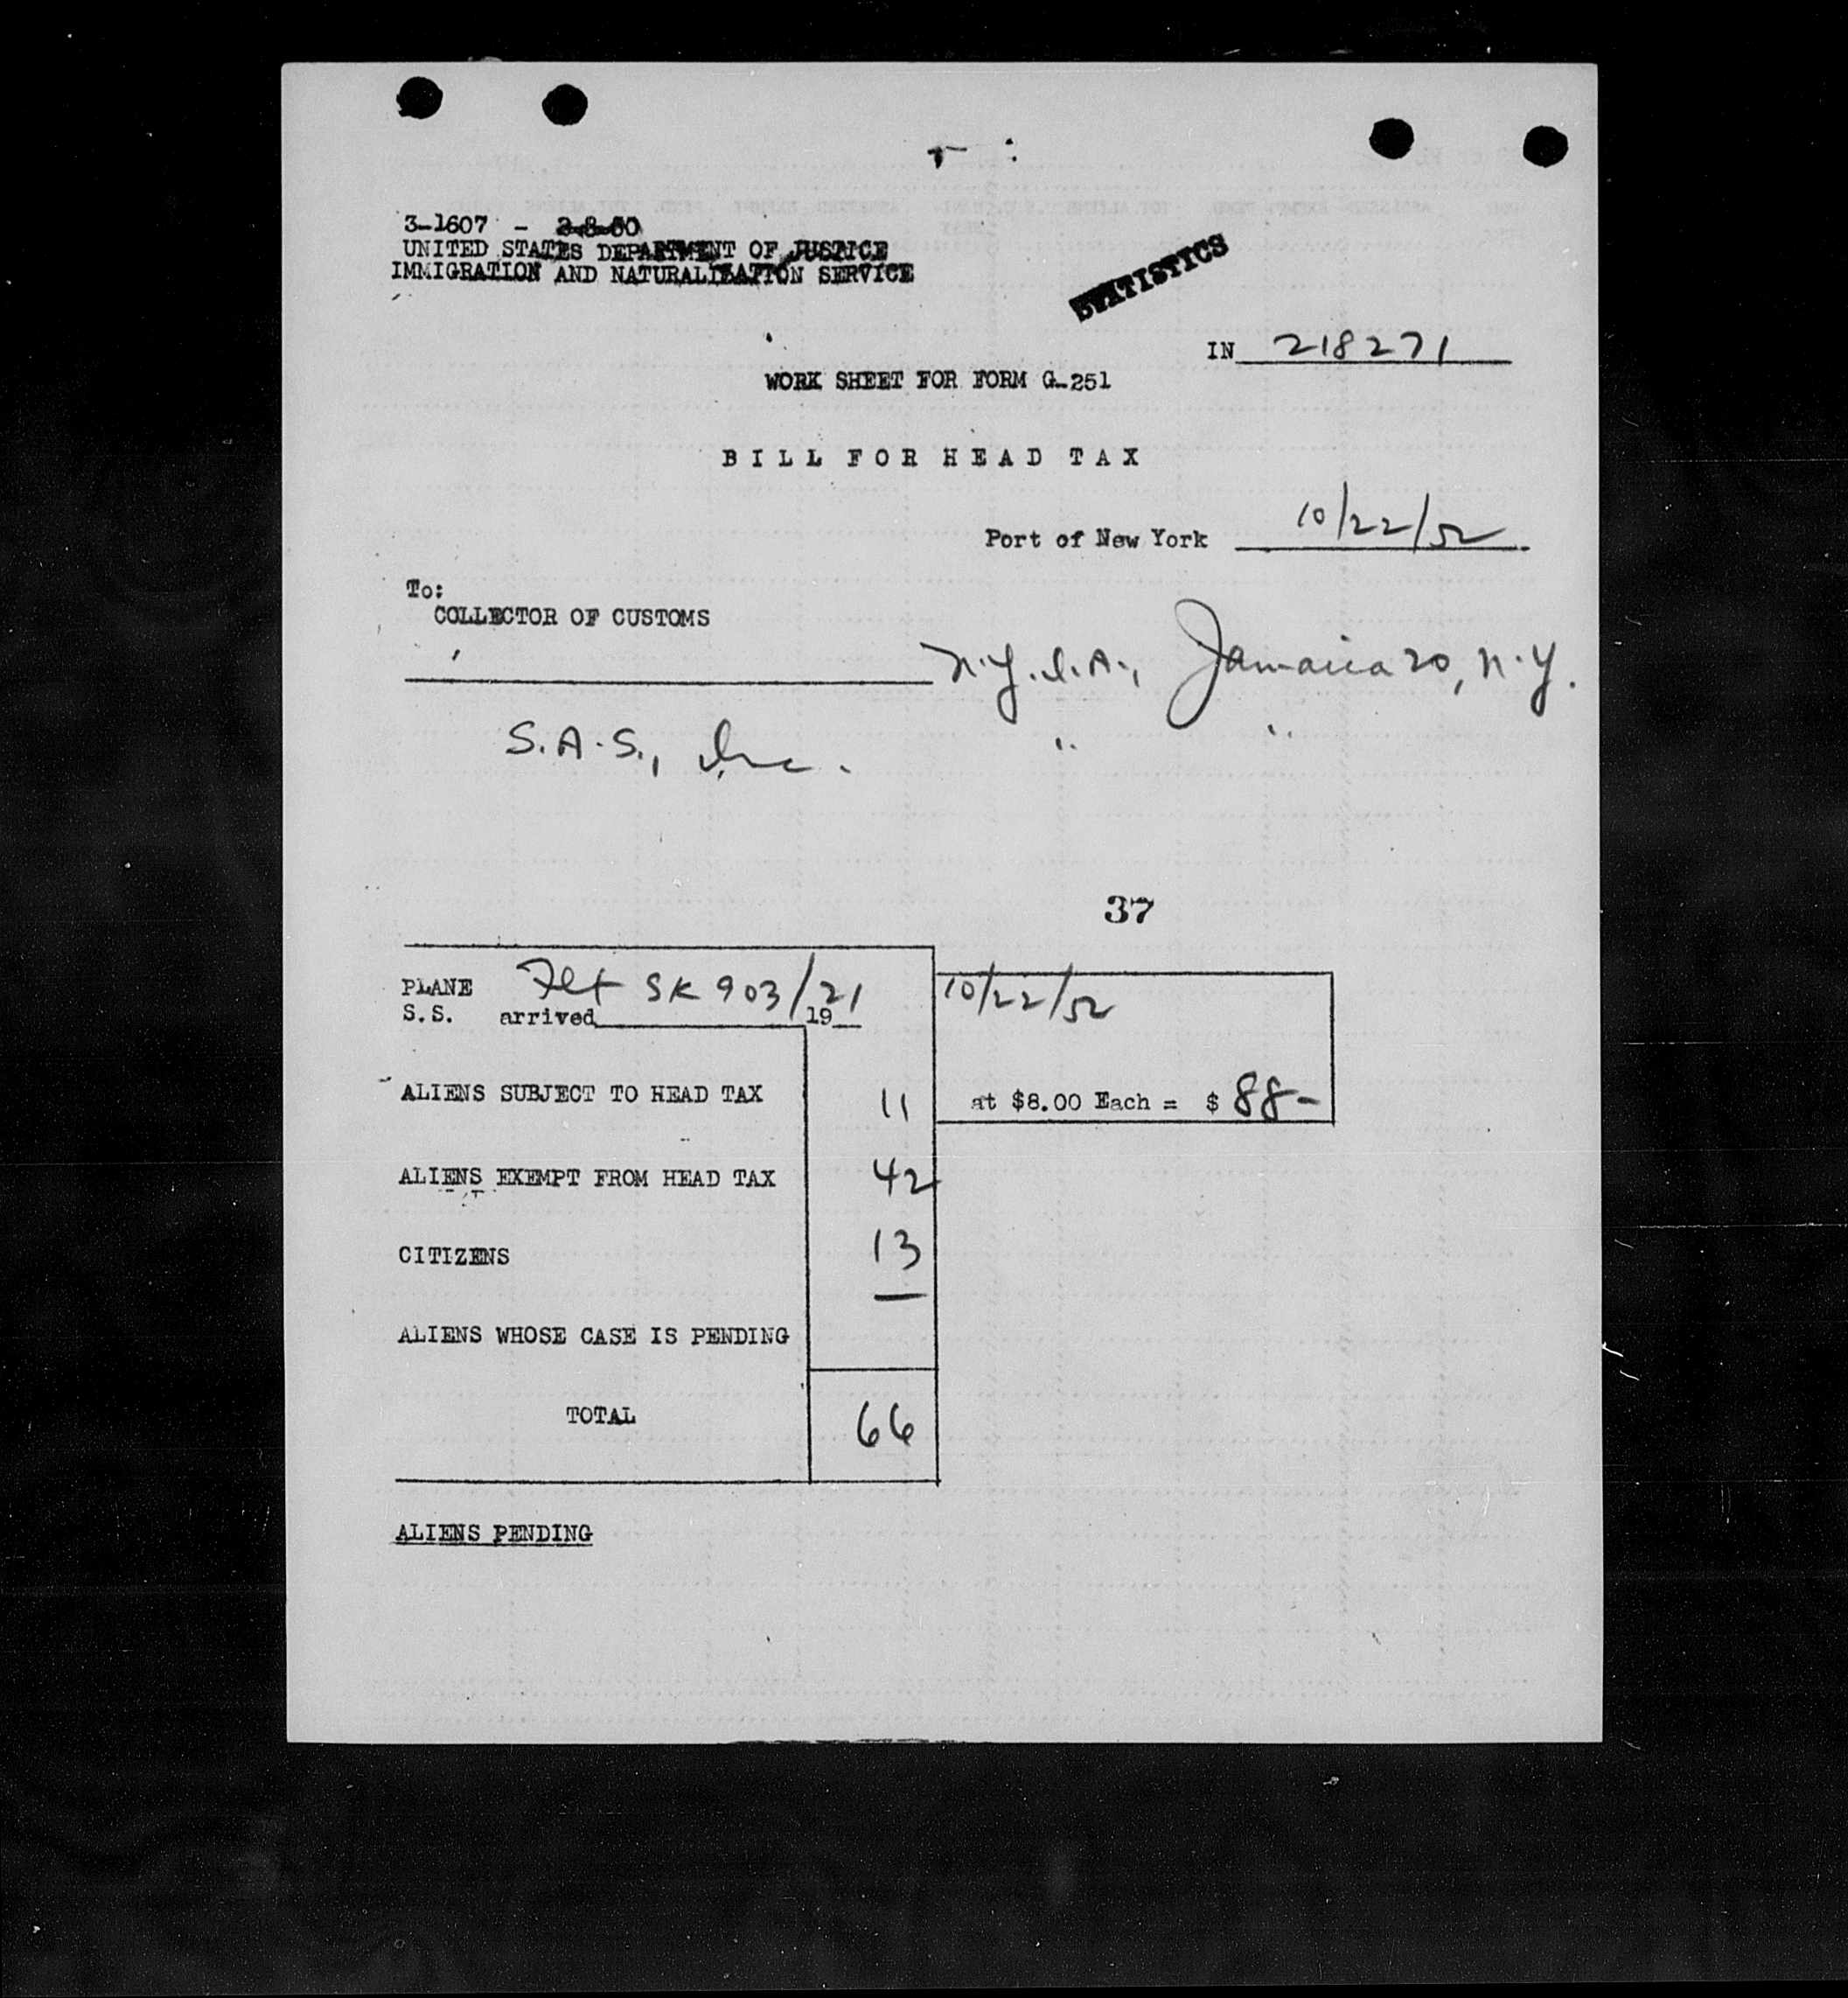 3-1607 - 2-8-50
UNITED STATES DEPARTMENT OF JUSTICE
IMMIGRATION AND NATURALIZATION SERVICE
STATISTICS
IN 218271
WORK SHEET FOR FORM G-251
BILL FOR HEAD TAX
Port of New York 10/22/52
To:
COLLECTOR OF CUSTOMS
N.Y.I.A., Jamaica 20, N.Y.
S.A.S., Inc. " "
37
PLANE Flt SK 903/21 10/22/52
S.S. arrived 19
ALIENS SUBJECT TO HEAD TAX 11 at $8.00 Each = $ 88-
ALIENS EXEMPT FROM HEAD TAX 42
CITIZENS 13
ALIENS WHOSE CASE IS PENDING
TOTAL 66
ALIENS PENDING